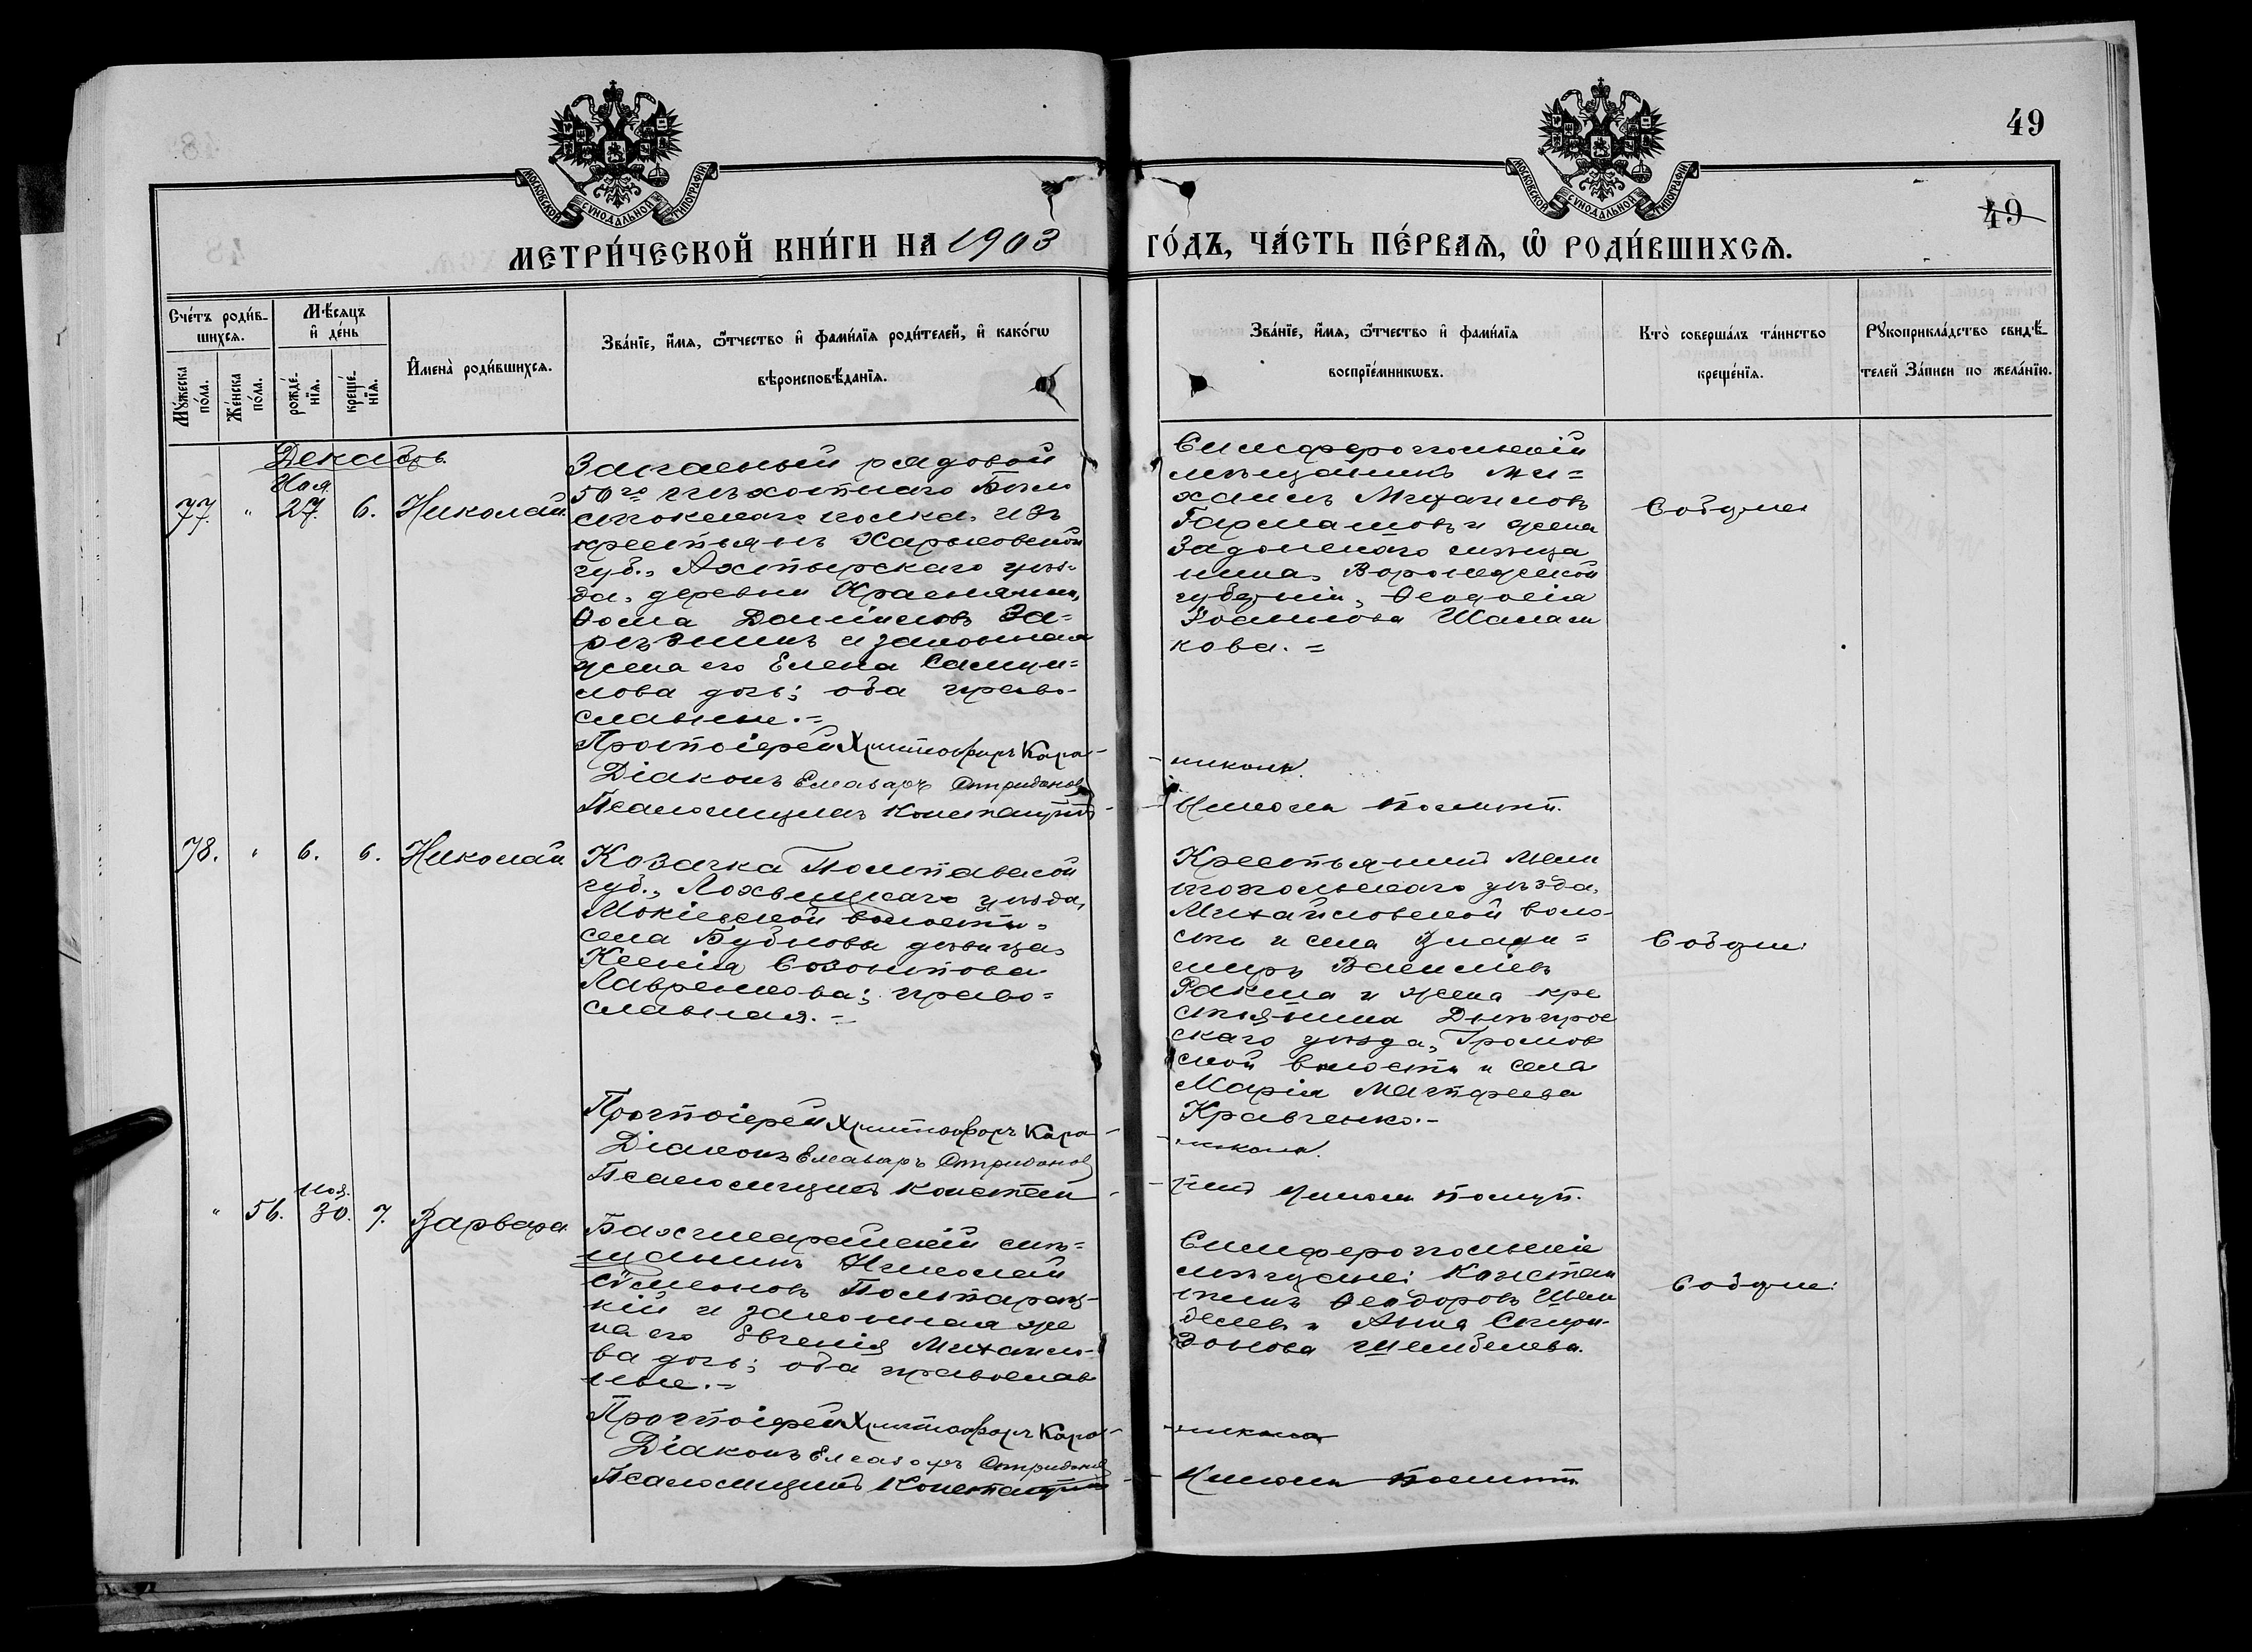 49
49
МОСКОВСКОЙ СУНОДАЛЬНОЙ ТИПОГРАФІИ
МОСКОВСКОЙ СУНОДАЛЬНОЙ ТИПОГРАФІИ
МЕТРИ́ЧЕСКОЙ КНИ́ГИ НА 1903
ГО́ДЪ, ЧА́СТЬ ПЕ́РВАѦ, Ѽ РОДИ́ВШИХСѦ.
Сче́тъ роди́в-
шихсѧ.
Мѣ́сѧцъ
и҆ де́нь
Мꙋ́жеска
по́ла.
Же́нска
по́ла.
рожде́-
нїѧ.
креще́-
нїѧ.
И҆мена̀ роди́вшихсѧ.
Зва́нїе, и҆́мѧ, ѻ҆́тчество и҆ фами́лїѧ роди́телей, и҆ како́гѡ
вѣроисповѣ́данїѧ.
Зва́нїе, и҆́мѧ, ѻ҆́тчество и҆ фами́лїѧ
воспрїе́мникѡвъ.
Кто̀ соверша́лъ та́инство
креще́нїѧ.
Рꙋкоприкла́дство свидѣ́-
телей За́писи по жела́нїю.
Декабрь.
Ноя.
77. " 27. 6. Николай.
Запасный рядовой
50го пѣхотнаго Бѣло
стокскаго полка, изъ
крестьянъ Харьковской
губ., Ахтырскаго уѣз-
да, деревни
Ѳома Даніиловъ За-
рѣзникъ и законная
жена его Елена Самуи=
лова дочь; оба право-
славные.=
Протоіерей Христофоръ Кара-
Діаконъ Елеазаръ Спиридоновъ
Псаломщикъ Константинъ
Симферопольскій
мѣщанинъ Ми=
хаилъ Михаиловъ
и жена
Задонскаго мѣща
нина, Воронежской
губерніи, Ѳеодосія
Іоаннова Шалаш
кова.=
78. " 6. 6. Николай
Козачка Полтавской
губ., Лохвицкаго уѣзда,
Мокіевской волости,
села Бубновы дѣвица
Ксенія Созонтова
Лавренкова; право=
славная.=
Протоіерей Христофоръ Кара-
Діаконъ Елеазаръ Спиридоновъ
Псаломщикъ Констан-
Крестьянинъ Мели
топольскаго уѣзда,
Михайловской воло-
сти и села Влади=
миръ Васильевъ
Ракша и жена кре
стьянина Днѣпров
скаго уѣзда, Громов
ской волости и села
Марія Матѳеева
Кравченко.-
тинъ
" 56. ноя. 30. 7. Варвара.
Бахчисарайскій мѣ=
щанинъ Николай
Сѵмеоновъ Полтарац-
кій и законная же
на его Евгенія Михаило-
ва дочь; оба православ
ные.=
Протоіерей Христофоръ Кара-
Діаконъ Елеазаръ Спиридоновъ
Псаломщикъ Константинъ
Симферопольскіе
мѣщане: Констан
тинъ Ѳеодоровъ
и Анна Спири-
донова